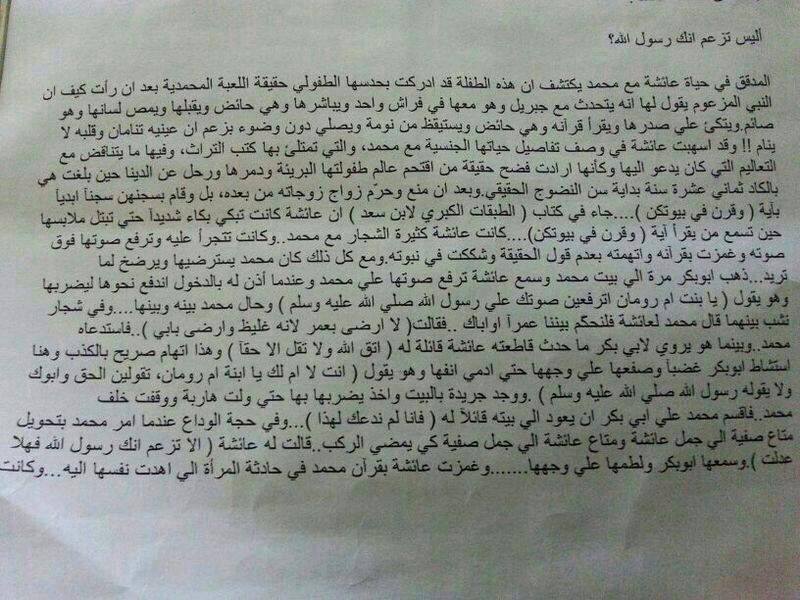 أليس تزعم انك رسول الله؟
المدقق في حياة عائشة مع محمد يكتشف ان هذه الطفلة قد ادركت بحدسها الطفولي حقيقة اللعبة المحمدية بعد ان رأت كيف ان
النبي المزعوم يقول لها انه يتحدث مع جبريل وهو معها في فراش واحد ويباشرها وهي حائض ويقبلها ويمص لسانها وهو
صائم.ويتكئ علي صدرها ويقرأ قرآنه وهي حائض ويستيقظ من نومة ويصلي دون وضوء بزعم ان عينيه تنامان وقلبه لا
ينام !! وقد اسهبت عائشة في وصف تفاصيل حياتها الجنسية مع محمد، والتي تمتلئ بها كتب التراث، وفيها ما يتناقض مع
التعاليم التي كان يدعو اليها وكأنها ارادت فضح حقيقة من اقتحم عالم طفولتها البريئة ودمرها ورحل عن الدينا حين بلغت هي
بالكاد ثماني عشرة سنة بداية سن النضوج الحقيقي.وبعد ان منع وحرّم زواج زوجاته من بعده، بل وقام بسجنهن سجنآ ابديآ
بآية ( وقرن في بيوتكن )....جاء في كتاب ( الطبقات الكبري لابن سعد ) ان عائشة كانت تبكي بكاء شديدآ حتي تبتل ملابسها
حين تسمع من يقرأ آية ( وقرن في بيوتكن)....كانت عائشة كثيرة الشجار مع محمد..وكانت تتجرأ عليه وترفع صوتها فوق
صوته وغمزت بقرآنه واتهمته بعدم قول الحقيقة وشككت في نبوته.ومع كل ذلك كان محمد يسترضيها ويرضخ لما
تريد...ذهب ابوبكر مرة الي بيت محمد وسمع عائشة ترفع صوتها علي محمد وعندما أذن له بالدخول اندفع نحوها ليضربها
وهو يقول ( يا بنت ام رومان اترفعين صوتك علي رسول الله صلي الله عليه وسلم ) وحال محمد بينه وبينها....وفي شجار
نشب بينهما قال محمد لعائشة فلنحكّم بيننا عمرآ اواباك ..فقالت( لا ارضى بعمر لانه غليظ وارضى بابي )..فاستدعاه
محمد..وبينما هو يروي لابي بكر ما حدث قاطعته عائشة قائلة له ( اتق الله ولا تقل الا حقآ ) وهذا اتهام صريح بالكذب وهنا
استشاط ابوبكر غضبآ وصفعها علي وجهها حتي ادمي انفها وهو يقول ( انت لا ام لك يا ابنة ام رومان، تقولين الحق وابوك
ولا يقوله رسول الله صلي الله عليه وسلم ) .ووجد جريدة بالبيت واخذ يضربها بها حتي ولت هاربة ووقفت خلف
محمد..فاقسم محمد علي ابي بكر ان يعود الي بيته قائلآ له ( فانا لم ندعك لهذا )...وفي حجة الوداع عندما امر محمد بتحويل
متاع صفية الي جمل عائشة ومتاع عائشة الي جمل صفية كي يمضي الركب..قالت له عائشة ( الا تزعم انك رسول الله فهلا
عدلت ).وسمعها ابوبكر ولطمها علي وجهها.......وغمزت عائشة بقرآن محمد في حادثة المرأة الي اهدت نفسها اليه...وكانت